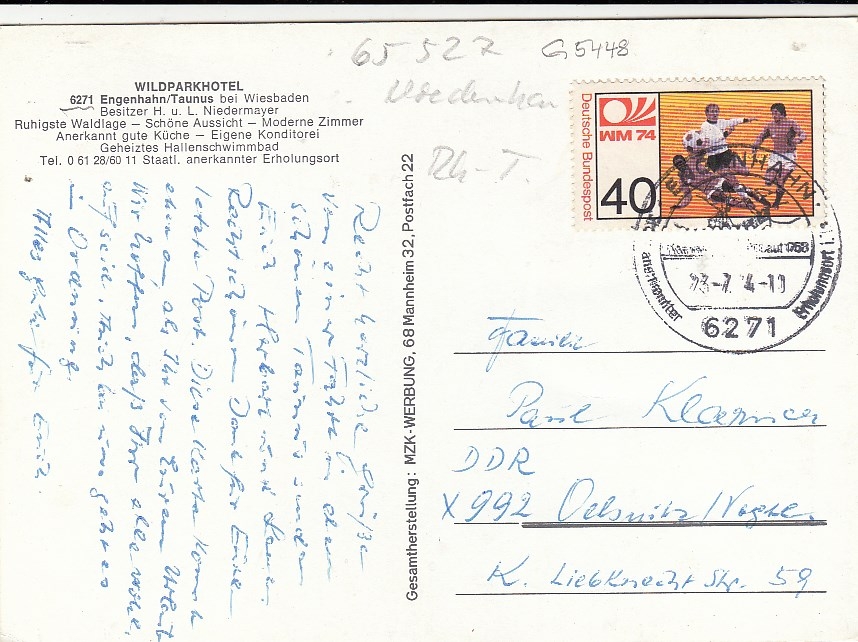 65 527 G5448
Rh-T.
WILDPARKHOTEL
6271 Engenhahn/Taunus bei Wiesbaden
Besitzer H. u. L. Niedermayer
Ruhigste Waldlage – Schöne Aussicht – Moderne Zimmer
Anerkannt gute Küche – Eigene Konditorei
Geheiztes Hallenschwimmbad
Tel. 0 61 28/60 11 Staatl. anerkannter Erholungsort
Deutsche Bundespost
WM 74
40
ENGENHAHN
anerkannter Erholungsort
6271
Gesamtherstellung: MZK-WERBUNG, 68 Mannheim 32, Postfach 22
Recht herzliche Grüße
von einer Fahrt in den
schönen Taunus senden
Euch Herbert und
Recht schönen Dank für Eure
letzte Post. Diese Karte kommt
eben an, als Ihr vom Euren Urlaub
Wir hoffen, daß Ihr alle wohl
auf seid. Auch bei uns geht es
in Ordnung.
Alles Gute für Euch.
Familie
Paul
DDR
X992 Oelsnitz/Vogtl.
K. Liebknecht Str. 59